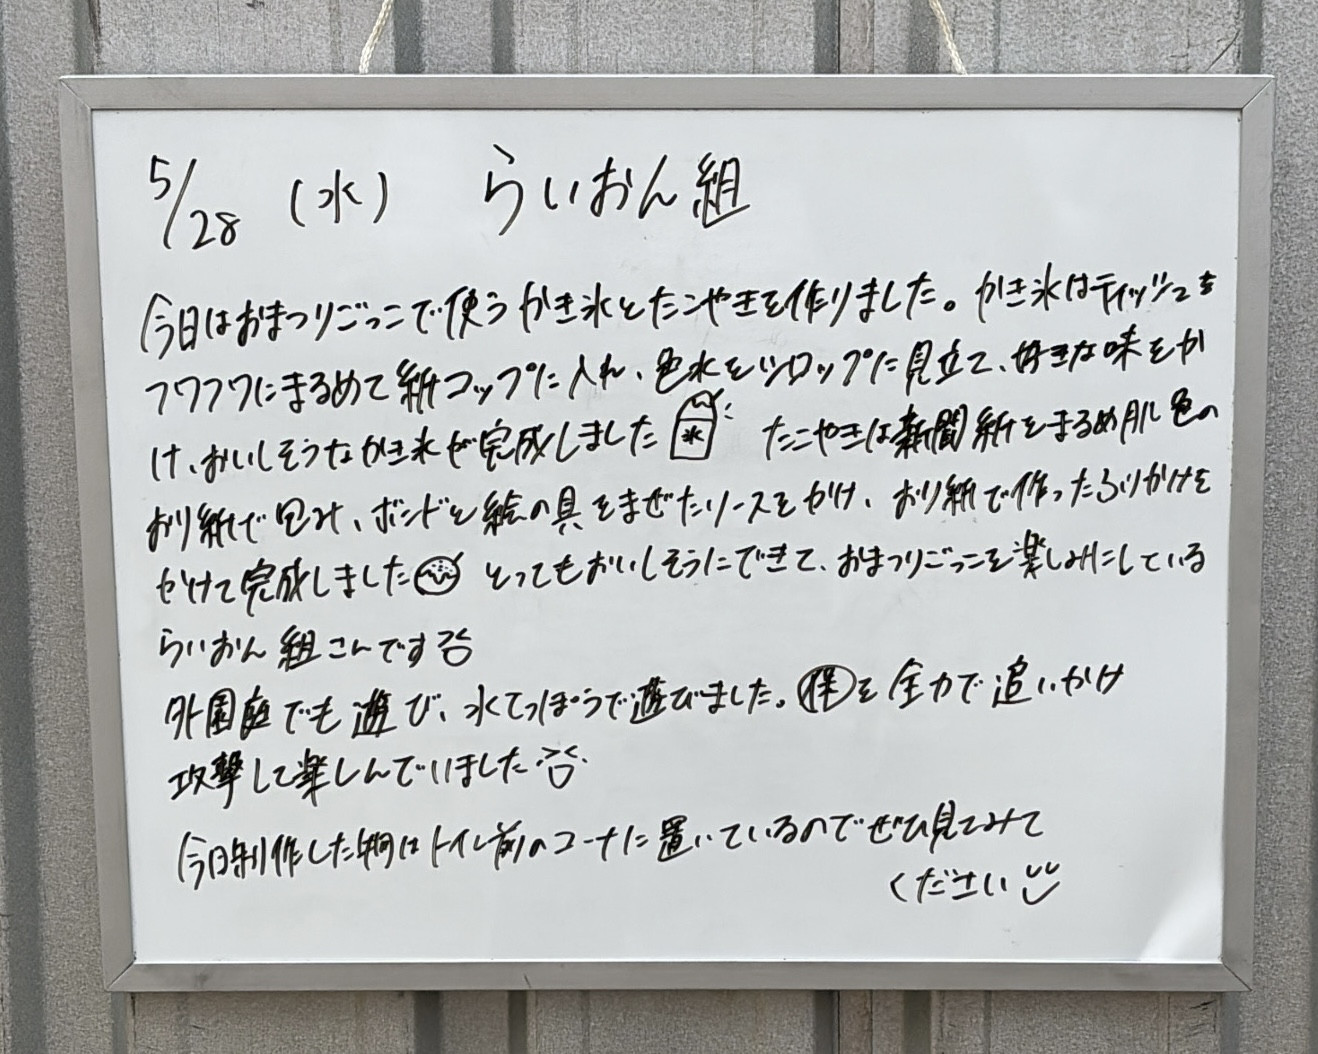 5/28 (水) らいおん組
今日はおまつりごっこで使うかき氷とたこやきを作りました。かき氷はティッシュを
フワフワにまるめて紙コップに入れ、色水をシロップに見立て、好きな味をか
け、おいしそうなかき氷が完成しました 氷 たこやきは新聞紙をまるめ肌色の
おり紙で包み、ボンドと絵の具をまぜたソースをかけ、おり紙で作ったふりかけを
かけて完成しました とってもおいしそうにできて、おまつりごっこを楽しみにしている
らいおん組さんです
外園庭でも遊び、水てっぽうで遊びました。保を全力で追いかけ
攻撃して楽しんでいました
今日制作した物はトイレ前のコーナに置いているのでぜひ見てみて
ください